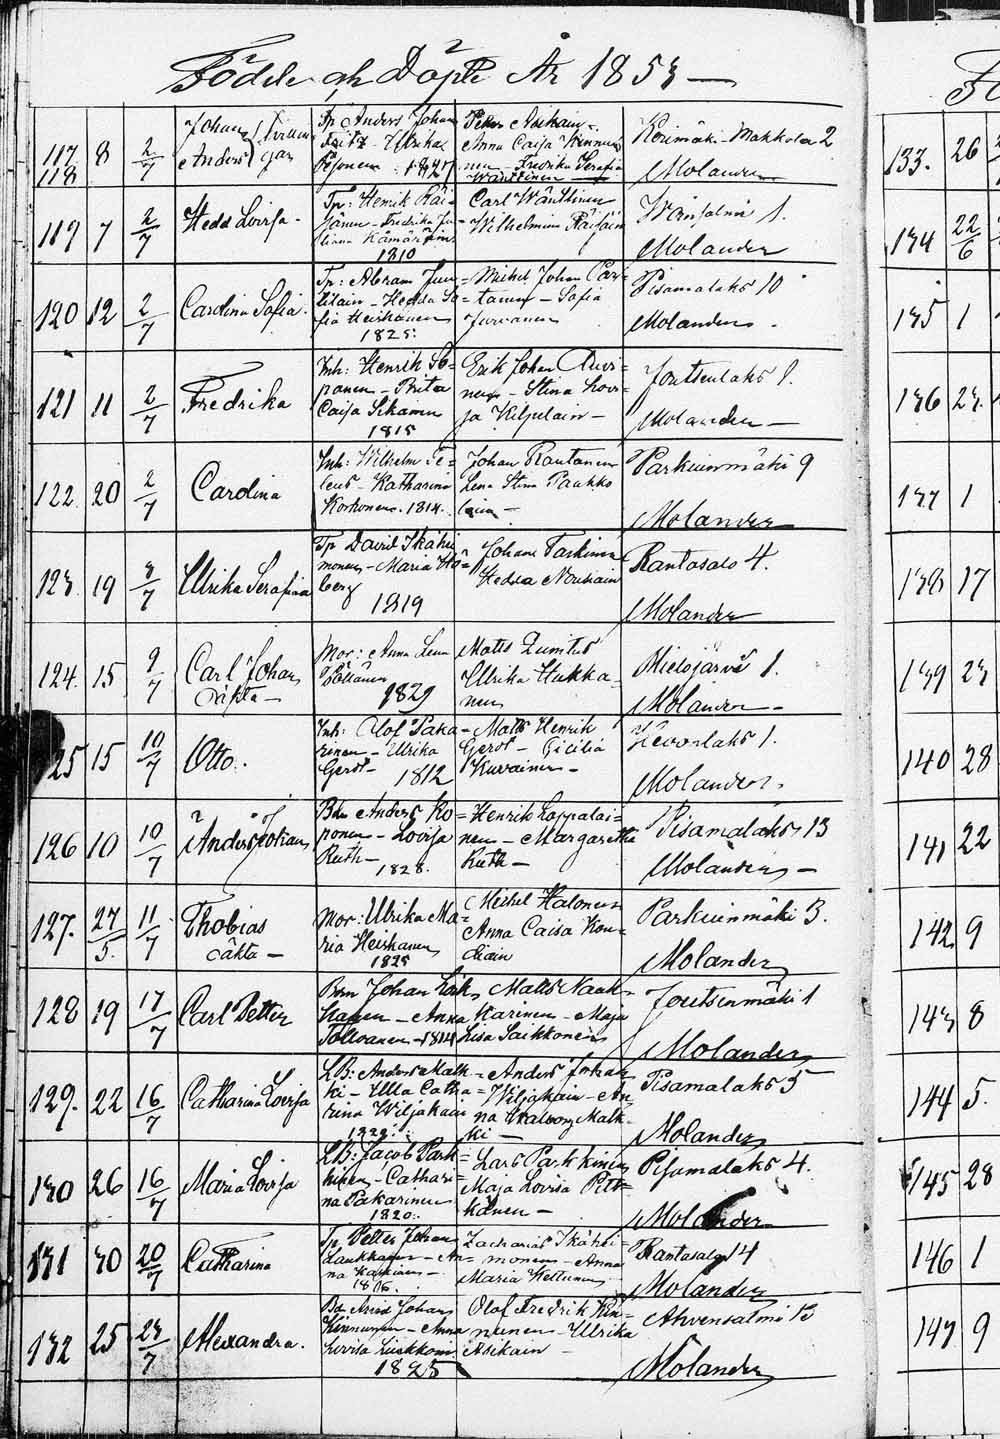 Födde och Döpte År 1853
117 8 2/7 Johan
118 Anders
Tp Anders Johan
Ulrika
1827
Anna Caisa
Fredrika Serafia
Wänttinen
Koimäki Makkola 2
Molander
119 7 2/7 Hedd Lovisa
Tp: Henrik Räi=
sänen - Fredrika Ju=
liana Kämäräinen
1810
Carl Wänttinen
Wilhelmina Räisäin
1.
Molander
120 12 2/7 Carolina Sofia
Tp: Abram Jun=
Hedda So=
fia Heiskanen
1825
Michel Johan Par=
tanen - Sofia
Juvanen
Pisamalaks 10
Molander
121 11 2/7 Fredrika
Inh: Henrik So=
panen - Brita
Caisa Sikanen
1815
Erik Johan Auvi=
nen - Stina Lovi=
sa Kilpelain -
Joutsenlaks 1.
Molander -
122. 20 2/7 Carolina
Inh: Wilhelm
Katharina
Korhonen. 1814.
Johan Rautanen
Lena Stina Paukko
lain -
Parkuinmäki 9
Molander
123. 19 3/7 Ulrika Serafia
Tp David Ikähei
monen - Maria Hö=
berg
1819
Johan Taskinen
Hedda Nousiain
Rantasalo 4.
Molander
124. 15 9/7 Carl Johan
oäkta -
Mor: Anna Lena
Pöllänen
1829
Matts Qvintus
Ulrika Hukka=
nen
Mielojärvi 1.
Molander -
125 15 10/7 Otto.
Inh: Olof Paka=
rinen - Ulrika
Geröt -
1812
Matts Henrik
Geröt - Cicilia
Kurvainen -
Hevonlaks 1.
Molander
126 10 10/7 Anders Johan
Bdn Anders Ko=
ponen - Lovisa
Ruth -
1828.
Henrik Loppalai=
nen - Margaretha
Ruth -
Pisamalaks 13
Molander -
127. 27/5. 11/7 Thobias
oäkta -
Mor: Ulrika Ma=
ria Heiskanen
1825
Michel Halonen
Anna Caisa Kou=
diain
Parkuinmäki 3.
Molander
128 19 17/7 Carl Petter
Johan
- Anna
Tolwanen - 1814
Matts Naak=
karinen - Maja
Lisa Laikkonen
Joutsenmäki 1
Molander
129. 22 16/7 Catharina Lovisa
LB: Anders Malk=
ki - Ulla Catha=
rina Wiljakain
1829.
Anders Johan
Wiljakain - An=
na Malk=
ki -
Pisamalaks 5
Molander
130 26 16/7 Maria Lovisa
LB: Jacob Park=
kinen - Cathari=
na Pakarinen
1820.
Lars Parkkinen
Maja Lovisa Pitk=
känen -
Pisamalaks 4.
Molander
131 30 20/7 Catharina
Tp Petter Johan
Laukkanen - An=
na
1816.
Zacharias Ikähei=
monen - Anna
Maria Kettunen
Rantasalo 14
Molander
132 25 23/7 Alexandra.
Bd Arvid Johan
Kinnunen - Anna
Lovisa
1825
Olof Fredrik Kin=
nunen - Ulrika
Asikain -
Ahvensalmi 13
Molander
133. 26
134 22/6
135 1
136 23.
137 1
138 17
139 23
140 28
141 22
142 9
143 8
144 5.
145 28
146 1
147 9